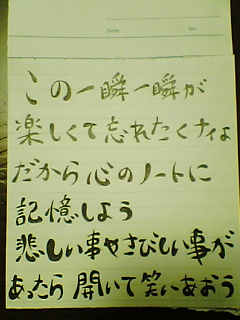 この一瞬一瞬が
楽しくて忘れたくナイよ
だから心のノートに
記憶しよう
悲しい事やさびしい事が
あったら開いて笑いあおう